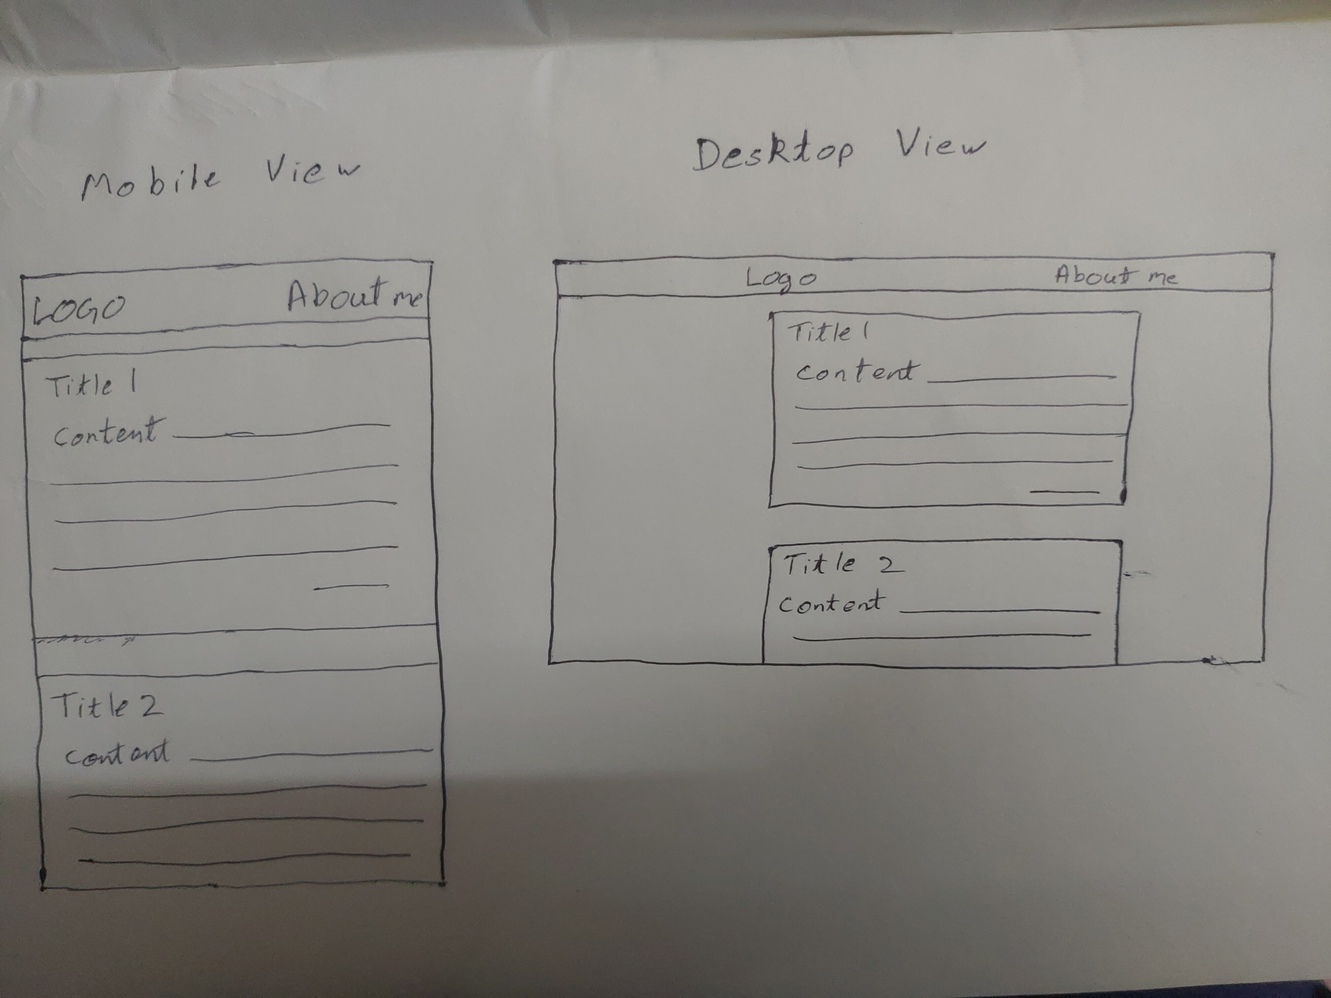 Mobile View
LOGO About me
Title 1
Content
Title 2
Content
Desktop View
Logo About me
Title 1
Content
Title 2
Content